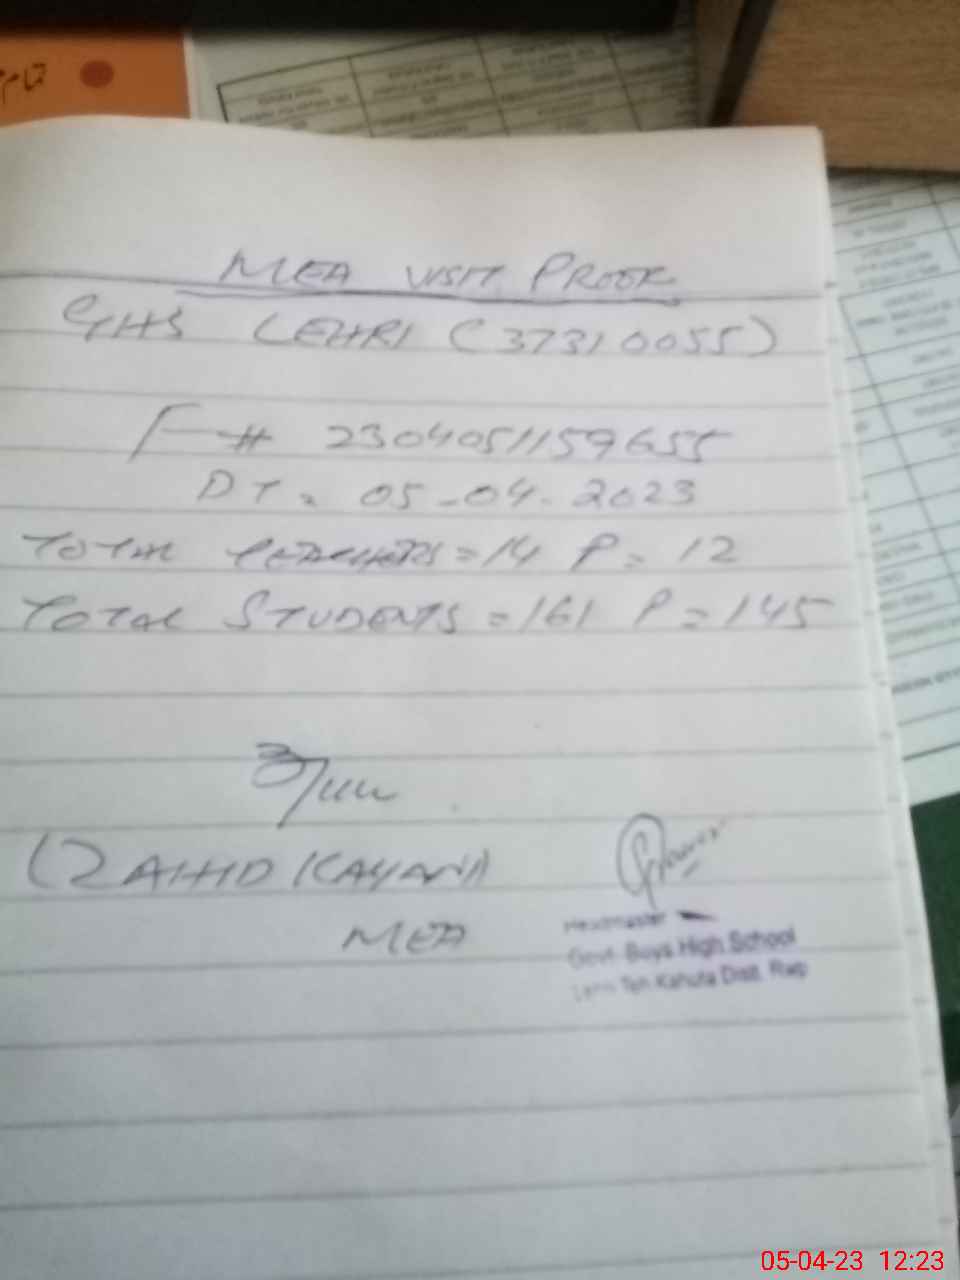 MEA VISIT PROOF
GHS LEHRI (37310055)
F-# 2304051159655
DT. 05-04-2023
TOTAL TEACHERS = 14 P = 12
TOTAL STUDENTS = 161 P = 145
(ZAHID KAYANI)
MEA
Headmaster
Govt. Boys High School
Teh Kahuta Distt. Rwp
05-04-23 12:23